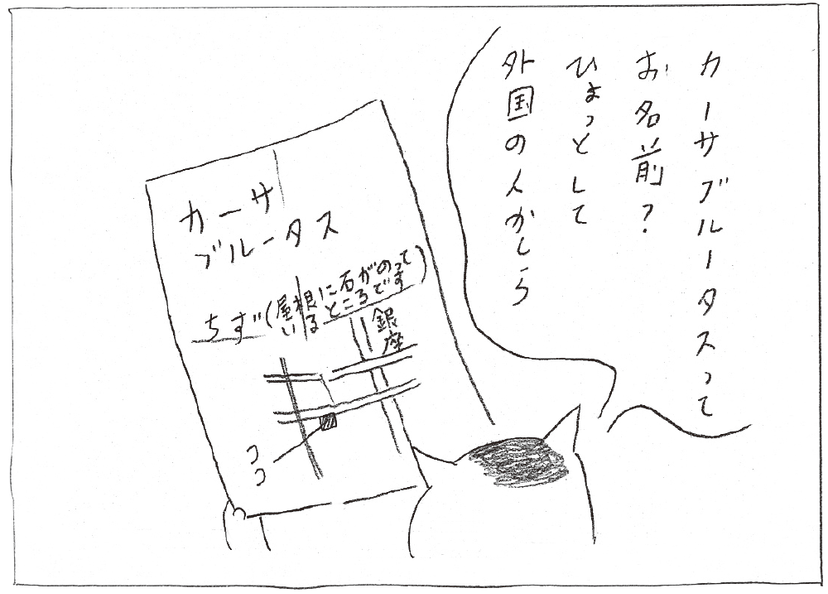 カーサブルータスって
お名前?
ひょっとして
外国の人かしら
カーサ
ブルータス
ちず(屋根に石がのって
いるところです)
銀座
ココ